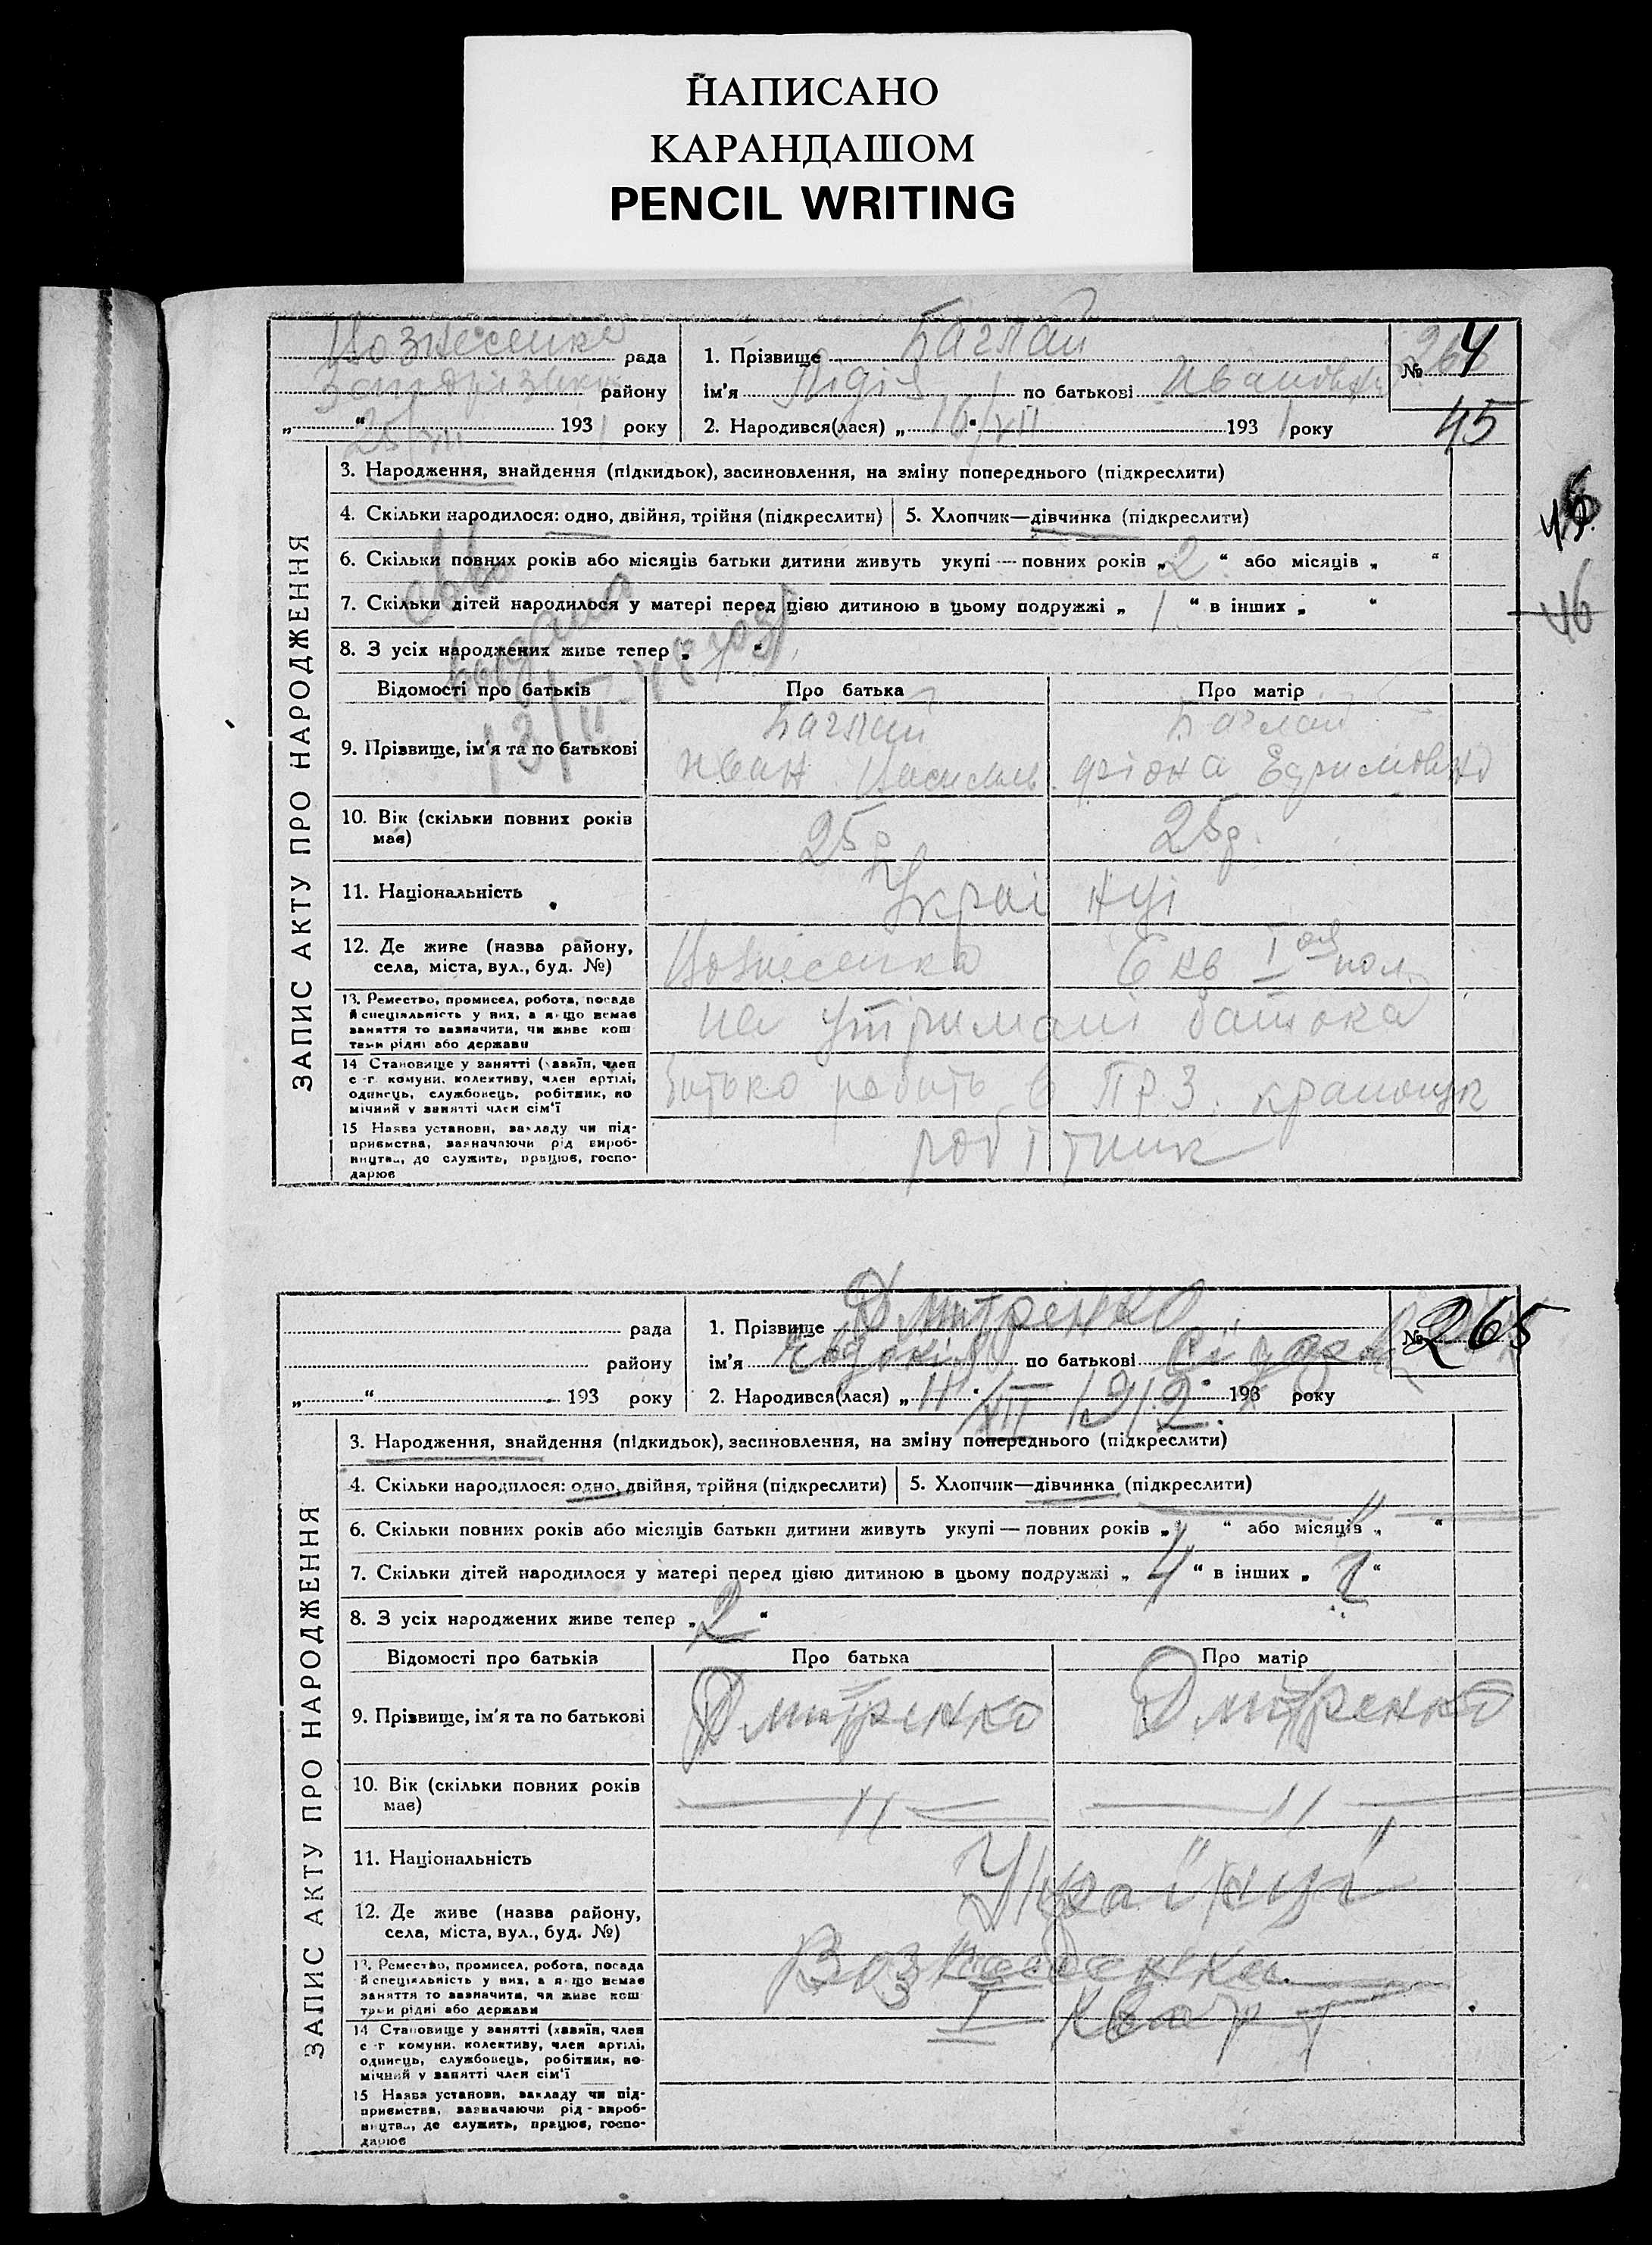 НАПИСАНО
КАРАНДАШОМ
PENCIL WRITING
Вознесенка рада
району
„ 25/VII “ 1931 року
1. Прізвище Баглай
ім'я Лідія по батькові Ивановна
2. Народився(лася) „ 16/VII “ 1931 року
№ 4
45
ЗАПИС АКТУ ПРО НАРОДЖЕННЯ
3. Народження, знайдення (підкидьок), засиновлення, на зміну попереднього (підкреслити)
4. Скільки народилося: одно, двійня, трійня (підкреслити)
5. Хлопчик—дівчинка (підкреслити)
6. Скільки повних років або місяців батьки дитини живуть укупі — повних років „ 2 “ або місяців „ “
7. Скільки дітей народилося у матері перед цією дитиною в цьому подружжі „ 1 “ в інших „ “
46
8. З усіх народжених живе тепер „ “
выдана
13/II
Відомості про батьків
Про батька
Про матір
9. Прізвище, ім'я та по батькові
Баглай
Иван Василь.
Баглай
Ефимовна
10. Вік (скільки повних років має)
25 р
25 р.
11. Національність
Українці
12. Де живе (назва району, села, міста, вул., буд. №)
Вознесенка
6 кв I ой пол.
13. Ремество, промисел, робота, посада й спеціяльність у них, а якщо немає заняття то зазначити, чи живе коштами рідні або держави
на утримані батька
14 Становище у занятті (хазяїн, член с.-г. комуни, колективу, член артілі, одинець, службовець, робітник, помічний у занятті член сім'ї
батько робить в ПРЗ.
15 Назва установи, закладу чи підприємства, зазначаючи рід виробництва, де служить, працює, господарює
робітник
рада
району
„ “ 193 року
1. Прізвище Дмитренко
ім'я Евдокія по батькові
2. Народився(лася) „ 11 “ VII 1912. 193 року
№ 265
ЗАПИС АКТУ ПРО НАРОДЖЕННЯ
3. Народження, знайдення (підкидьок), засиновлення, на зміну попереднього (підкреслити)
4. Скільки народилося: одно, двійня, трійня (підкреслити)
5. Хлопчик—дівчинка (підкреслити)
6. Скільки повних років або місяців батьки дитини живуть укупі — повних років „ “ або місяців „ “
7. Скільки дітей народилося у матері перед цією дитиною в цьому подружжі „ 4 “ в інших „ “
8. З усіх народжених живе тепер „ 2 “
Відомості про батьків
Про батька
Про матір
9. Прізвище, ім'я та по батькові
Дмитренко
Дмитренко
10. Вік (скільки повних років має)
— // —
— // —
11. Національність
Українці
12. Де живе (назва району, села, міста, вул., буд. №)
13. Ремество, промисел, робота, посада й спеціяльність у них, а якщо немає заняття то зазначити, чи живе коштами рідні або держави
I Кварт
14 Становище у занятті (хазяїн, член с.-г. комуни, колективу, член артілі, одинець, службовець, робітник, помічний у занятті член сім'ї
15 Назва установи, закладу чи підприємства, зазначаючи рід виробництва, де служить, працює, господарює